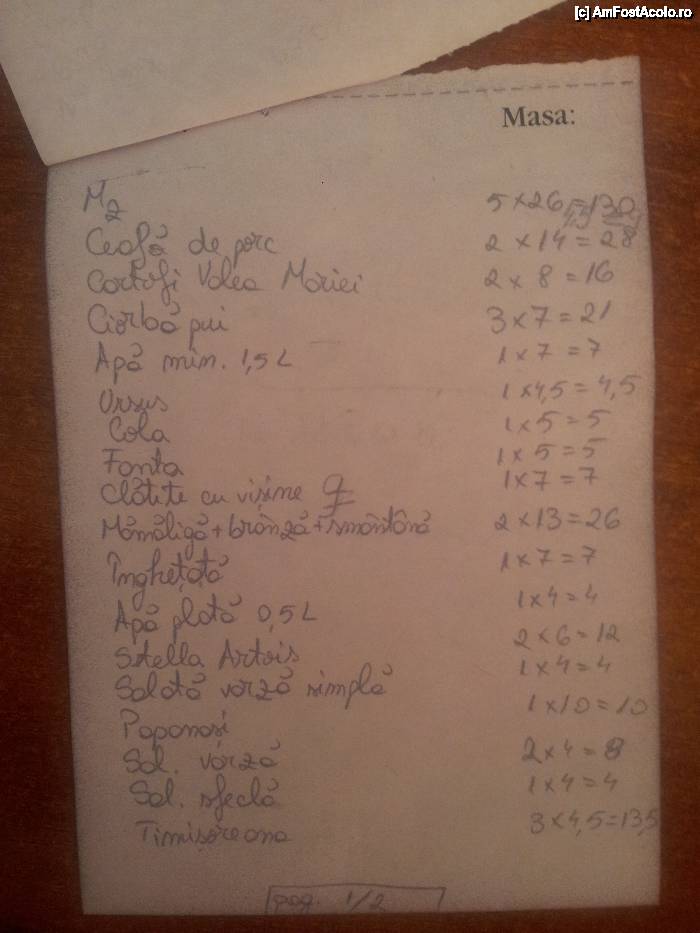 [c] AmFostAcolo.ro
Masa:
M2 5 x 26 = 130
Ceafă de porc 2 x 14 = 28
Cartofi Valea Mariei 2 x 8 = 16
Ciorbă pui 3 x 7 = 21
Apă min. 1,5 L 1 x 7 = 7
Ursus 1 x 4,5 = 4,5
Cola 1 x 5 = 5
Fanta 1 x 5 = 5
Clătite cu vișine 1 x 7 = 7
Mămăligă + brânză + smântână 2 x 13 = 26
Înghețată 1 x 7 = 7
Apă plată 0,5 L 1 x 4 = 4
Stella Artois 2 x 6 = 12
Salată varză simplă 1 x 4 = 4
Papanași 1 x 10 = 10
Sal. varză 2 x 4 = 8
Sal. sfeclă 1 x 4 = 4
Timișoreana 3 x 4,5 = 13,5
pag. 1/2